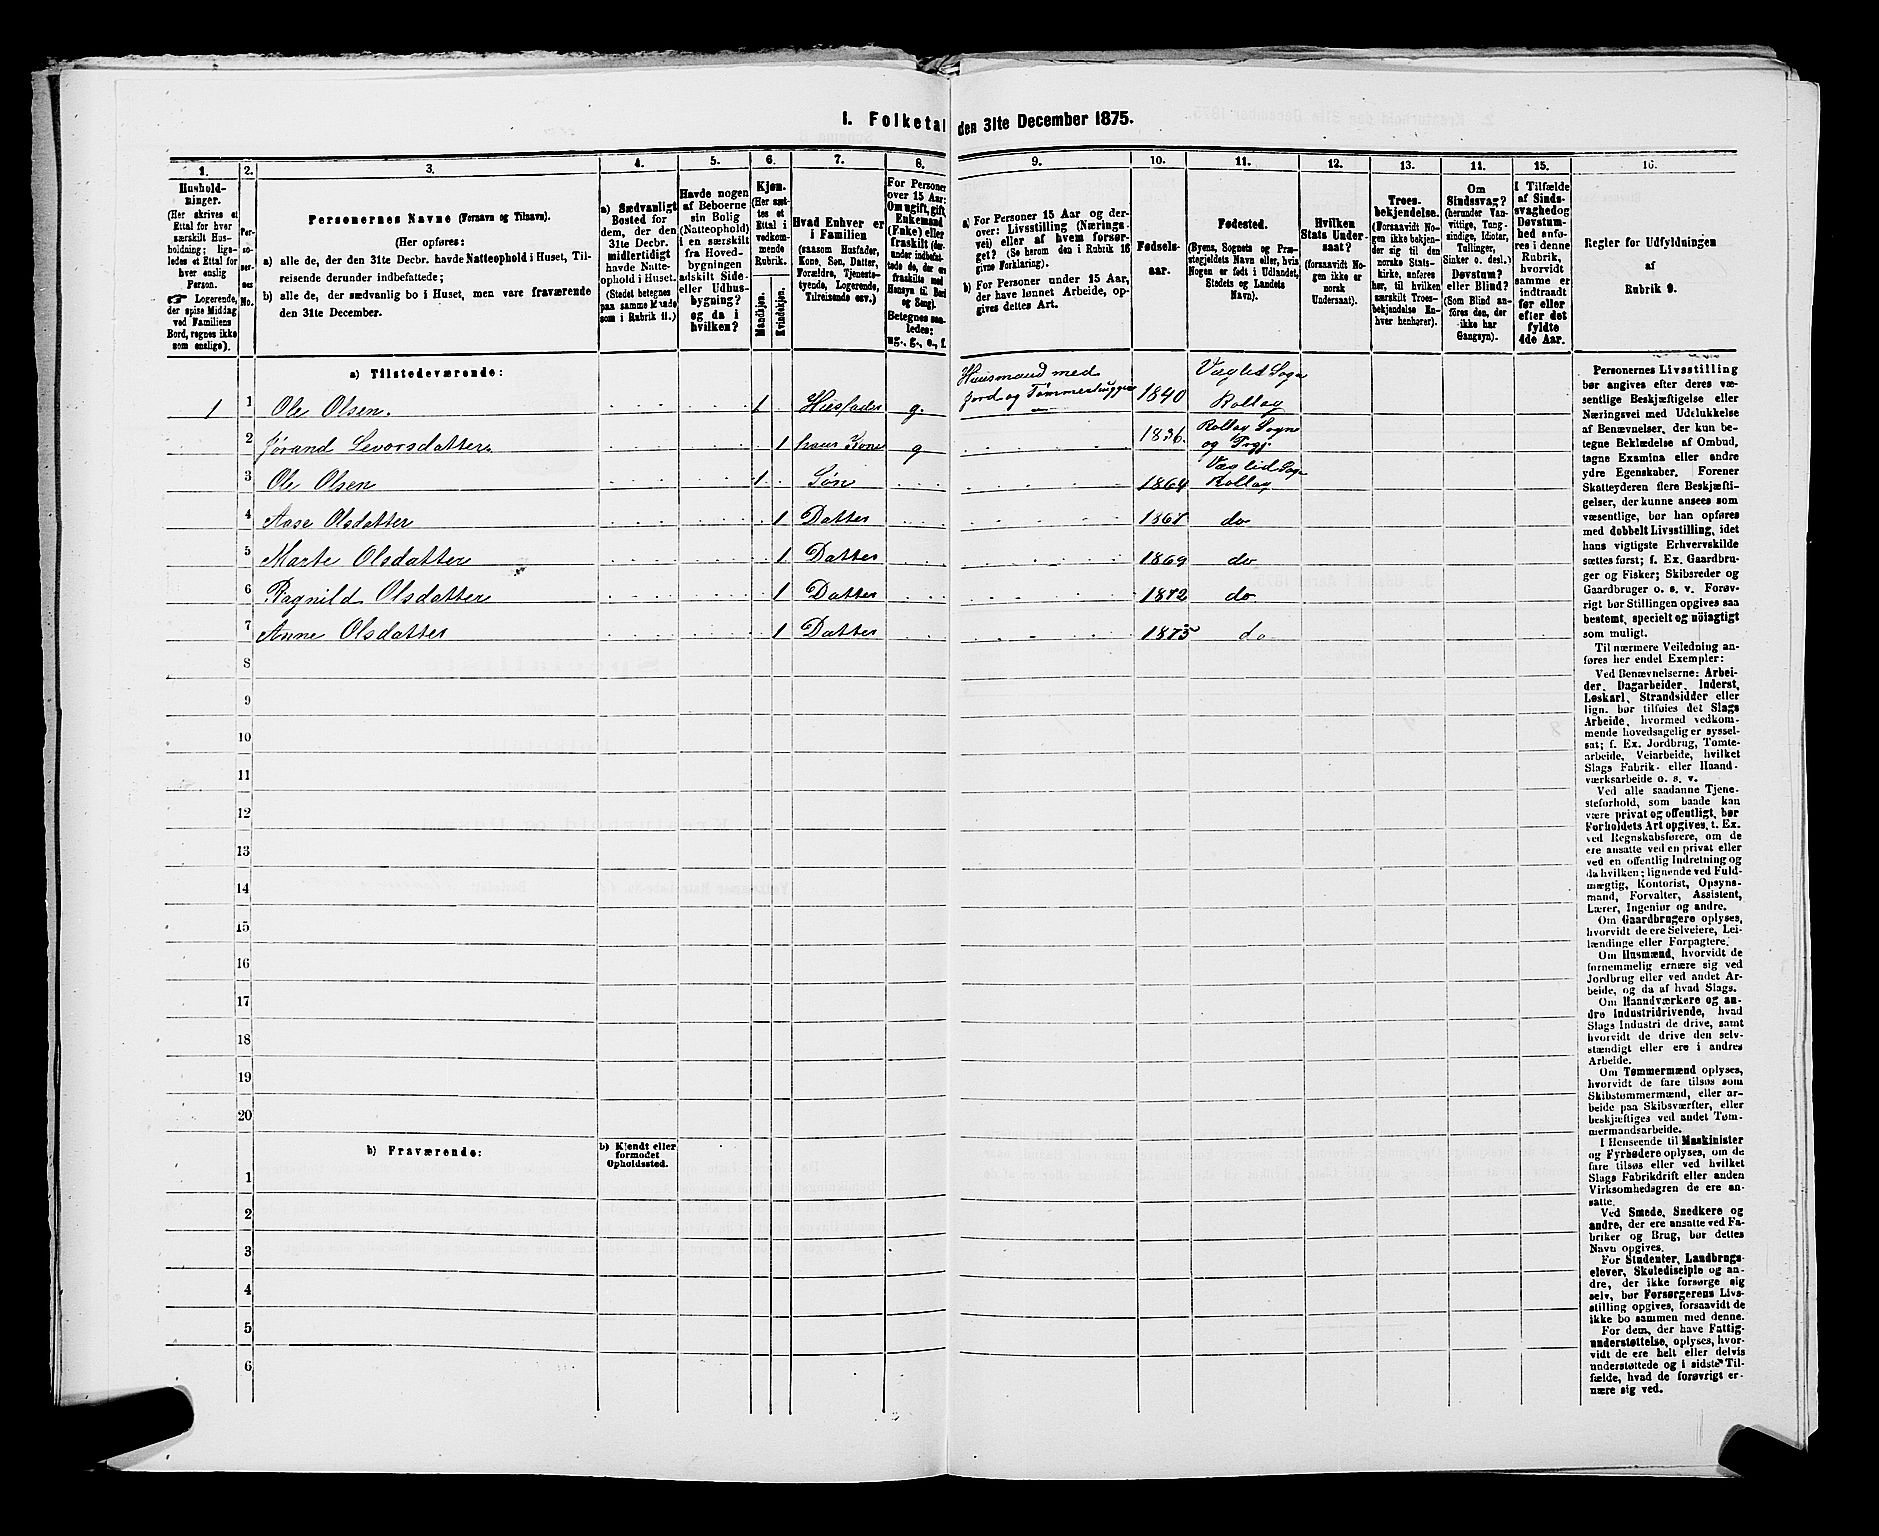 I. Folketal den 31te December 1875.
1. 2. 3. 4. 5. 6. 7. 8. 9. 10. 11. 12. 13. 14. 15. 16.
Hushold-
ninger.
(Her skrives et
Ettal for hver
særskilt Hus-
holdning; lige-
ledes et Ettal for
hver enslig
Person.
Logerende,
der spise Middag
ved Familiens
Bord, regnes ikke
som enslige).
Per-
so-
ner-
nes
No.
Personernes Navne (Fornavn og Tilnavn).
(Her opføres:
a) alle de, der den 31te Decbr. havde Natteophold i Huset, Til-
reisende derunder indbefattede;
b) alle de, der sædvanlig bo i Huset, men vare fraværende
den 31te December.
a) Sædvanligt
Bosted for
dem, der den
31te Decbr.
midlertidigt
havde Natte-
ophold i Huset.
(Stedet betegnes
paa samme Maade
som i Rubrik 11.)
Havde nogen
af Beboerne
sin Bolig
(Natteophold)
i en særskilt
fra Hoved-
bygningen
adskilt Side-
eller Udhus-
bygning?
og da i
hvilken?
Kjøn.
(Her sæt-
tes et
Ettal i
vedkom-
mende
Rubrik.
Mandkjøn.
Kvindekjøn.
Hvad Enhver er
i Familien
(saasom Husfader,
Kone, Søn, Datter,
Forældre, Tjeneste-
tyende, Logerende,
Tilreisende osv.)
For Personer
over 15 Aar:
Om ugift, gift,
Enkemand
(Enke) eller
fraskilt (der-
under indbefat-
tede de, der ere
fraskilte med
Hensyn til Bord
og Seng).
Betegnes saa-
ledes:
ug., g., e., f.
a) For Personer 15 Aar og der-
over: Livsstilling (Nærings-
vei) eller af hvem forsør-
get? (Se herom den i Rubrik 16
givne Forklaring).
b) For Personer under 15 Aar,
der have lønnet Arbeide, op-
gives dettes Art.
Fødsels-
aar.
Fødested.
(Byens, Sognets og Præ-
stegjeldets Navn eller, hvis
Nogen er født i Udlandet,
Stedets og Landets
Navn).
Hvilken
Stats Under-
saat?
(forsaavidt No-
gen ikke er
norsk
Undersaat).
Troes-
bekjendelse.
(Forsaavidt No-
gen ikke bekjen-
der sig til den
norske Stats-
kirke, anføres
her, til hvilken
særskilt Troes-
bekjendelse En-
hver henhører).
Om
Sindssvag?
(herunder Van-
vittige, Tung-
sindige, Idioter,
Tullinger,
Sinker o. desl.)
Døvstum?
eller Blind?
(Som Blind an-
føres den, der
ikke har
Gangsyn).
I Tilfælde
af Sinds-
svaghed og
Døvstum-
hed anfø-
res i denne
Rubrik,
hvorvidt
samme er
indtraadt
før eller
efter det
fyldte
4de Aar.
Regler for Udfyldningen
af
Rubrik 9.
a) Tilstedeværende:
1 1 Ole Olsen. 1 Husfader g. Huusmand med Jord og Tømmerhugger 1840 Væglid Sogn Rollag
2 Jørand Levorsdatter 1 hans Kone g 1836. Rollag Sogn og Prgj.
3 Ole Olsen 1 Søn 1864 Væglid Sogn Rollag
4 Aase Olsdatter 1 Datter 1867 do
5 Marte Olsdatter 1 Datter 1869 do
6 Ragnild Olsdatter 1 Datter 1872 do
7 Anne Olsdatter 1 Datter 1875 do
8
9
10
11
12
13
14
15
16
17
18
19
20
b) Fraværende:
b) Kjendt eller
formodet
Opholdssted.
1
2
3
4
5
6
Personernes Livsstilling
bør angives efter deres væ-
sentlige Beskjæftigelse eller
Næringsvei med Udelukkelse
af Benævnelser, der kun be-
tegne Beklædelse af Ombud,
tagne Examina eller andre
ydre Egenskaber. Forener
Skatteyderen flere Beskjæfti-
gelser, der kunne ansees som
væsentlige, bør han opføres
med dobbelt Livsstilling, idet
hans vigtigste Erhvervskilde
sættes først; f. Ex. Gaardbru-
ger og Fisker; Skibsreder og
Gaardbruger o. s. v. Forøv-
rigt bør Stillingen opgives saa
bestemt, specielt og nöiagtigt
som muligt.
Til nærmere Veiledning an-
føres her endel Exempler:
Ved Benævnelserne: Arbei-
der, Dagarbeider, Inderst,
Løskarl, Strandsidder eller
lign. bør tilføies det Slags
Arbeide, hvormed vedkom-
mende hovedsagelig er syssel-
sat; f. Ex. Jordbrug, Tomte-
arbeide, Veiarbeide, hvilket
Slags Fabrik- eller Haand-
værksarbeide o. s. v.
Ved alle saadanne Tjene-
steforhold, som baade kan
være privat og offentligt, bør
Forholdets Art opgives, t. Ex.
ved Regnskabsførere, om de
ere ansatte ved en privat eller
ved en offentlig Indretning og
da hvilken; lignende ved Fuld-
mægtig, Kontorist, Opsyns-
mand, Forvalter, Assistent,
Lærer, Ingeniør og andre.
Om Gaardbrugere oplyses,
hvorvidt de ere Selveiere, Lei-
lændinge eller Forpagtere.
Om Husmænd, hvorvidt de
fornemmelig ernære sig ved
Jordbrug eller ved andet Ar-
beide, og da af hvad Slags.
Om Haandværkere og an-
dre Industridrivende, hvad
Slags Industri de drive, samt
hvorvidt de drive den selv-
stændigt eller ere i andres
Arbeide.
Om Tømmermænd oplyses,
hvorvidt de fare tilsøs som
Skibstømmermænd, eller ar-
beide paa Skibsværfter, eller
beskjæftiges ved andet Tøm-
mermandsarbeide.
I Henseende til Maskinister
og Fyrbødere oplyses, om de
fare tilsøs eller ved hvilket
Slags Fabrikdrift eller anden
Virksomhedsgren de ere an-
satte.
Ved Smede, Snedkere og
andre, der ere ansatte ved Fa-
briker og Brug, bør dettes
Navn opgives.
For Studenter, Landbrugs-
elever, Skoledisciple og an-
dre, der ikke forsørge sig
selv, bør Forsørgerens Livs-
stilling opgives, forsaavidt de
ikke bo sammen med denne.
For dem, der have Fattig-
understøttelse, oplyses, hvor-
vidt de ere helt eller delvis
understøttede og i sidste Til-
fælde, hvad de forøvrigt er-
nære sig ved.